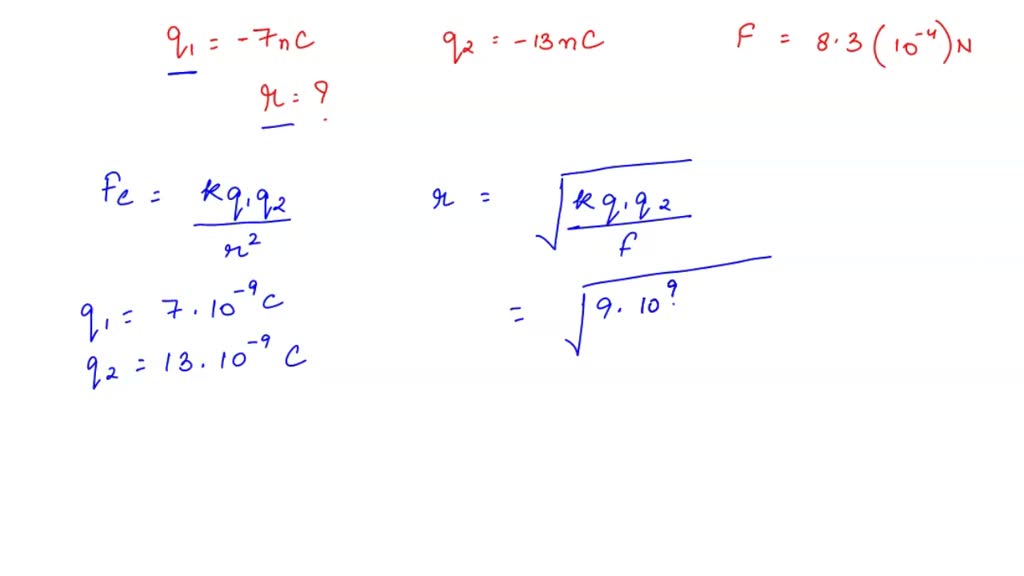 q₁ = -7nC q₂ = -13nC F = 8.3 (10⁻⁴) N
r = ?
Fe = kq₁q₂ / r² r = √(kq₁q₂ / F)
q₁ = 7.10⁻⁹ C = √(9.10⁹
q₂ = 13.10⁻⁹ C